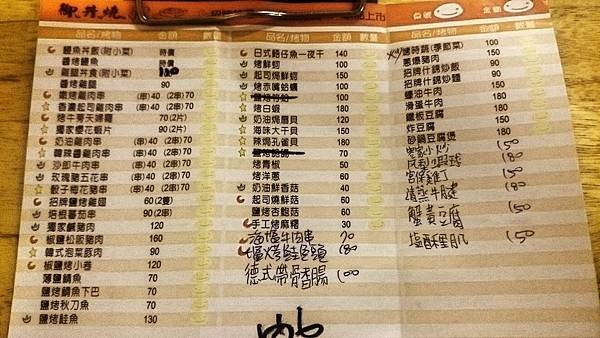 御丼燒
上市
品名/烤物 金額 數量
鰻魚丼飯(附小菜) 時價
醬烤鰻魚 時價
雞腿丼食(附小菜) 120
醬烤雞腿 90
(串)40 (2串)70
香濃起司雞肉串 (串)40 (2串)70
70(2片)
獨家櫻花蝦片 90(2片)
奶油雞肉串 (串)40 (2串)70
韓辣醬雞肉串 (串)40 (2串)70
沙爹牛肉串 (串)40 (2串)70
玫瑰豬五花串 (串)40 (2串)70
骰子梅花豬串 (串)40 (2串)70
招牌鹽烤雞翅 60(2隻)
培根蕃茄串 90(2串)
獨家鹹豬肉 120
椒鹽松阪豬肉 160
韓式泡菜豚肉 90
椒鹽烤小卷 120
薄鹽鯖魚 70
鹽烤鯛魚下巴 70
鹽烤秋刀魚 70
鹽烤鮭魚 130
品名/烤物 金額 數量
日式鯧仔魚一夜干 140
烤鮮蚵 100
起司焗鮮蚵 150
烤赤嘴蛤蠣 100
100
烤白蝦 180
奶油焗扇貝 120
海味大干貝 150
辣焗孔雀貝 150
70
烤青椒 50
烤洋蔥 60
奶油鮮香菇 40
起司燒鮮菇 60
鹽烤杏鮑菇 60
手工烤麻糬 30
牛肉串 70
180
德式帶骨香腸 100
品名/烤物 金額 數量
烤時蔬(季節菜) 100
蔥爆豬肉 90
招牌什錦炒飯 100
招牌什錦炒麵 90
蠔油牛肉 100
滑蛋牛肉 180
鐵板豆腐 180
炸豆腐 150
砂鍋豆腐煲 180
客家小炒 150
鳳梨蝦球 180
宮保雞丁 150
清蒸牛腱 180
蟹黃豆腐 150
塩酥里肌 150
內6